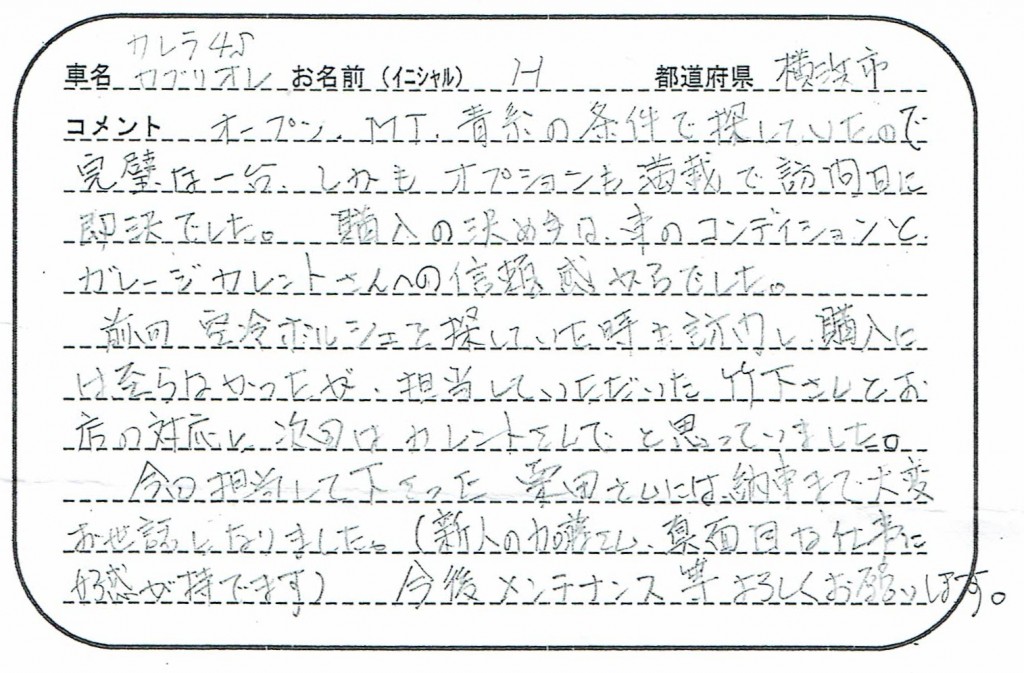 カレラ4S
車名 カブリオレ お名前(イニシャル) H 都道府県 横浜市
コメント オープン、MT、青系の条件で探していたので
完璧な一台、しかもオプションも満載で訪問日に
即決でした。 購入の決め手は、車のコンディションと
ガレージカレントさんへの信頼感からでした。
前回 空冷ポルシェを探していた時も訪問し、購入に
は至らなかったが、担当していただいた竹下さんとお
店の対応に、次回はカレントさんで と思っていました。
今回担当して下さった 栗田さんには、納車まで大変
お世話になりました。(新人の加藤さん、真面目な仕事に
好感が持てます) 今後メンテナンス等よろしくお願いします。